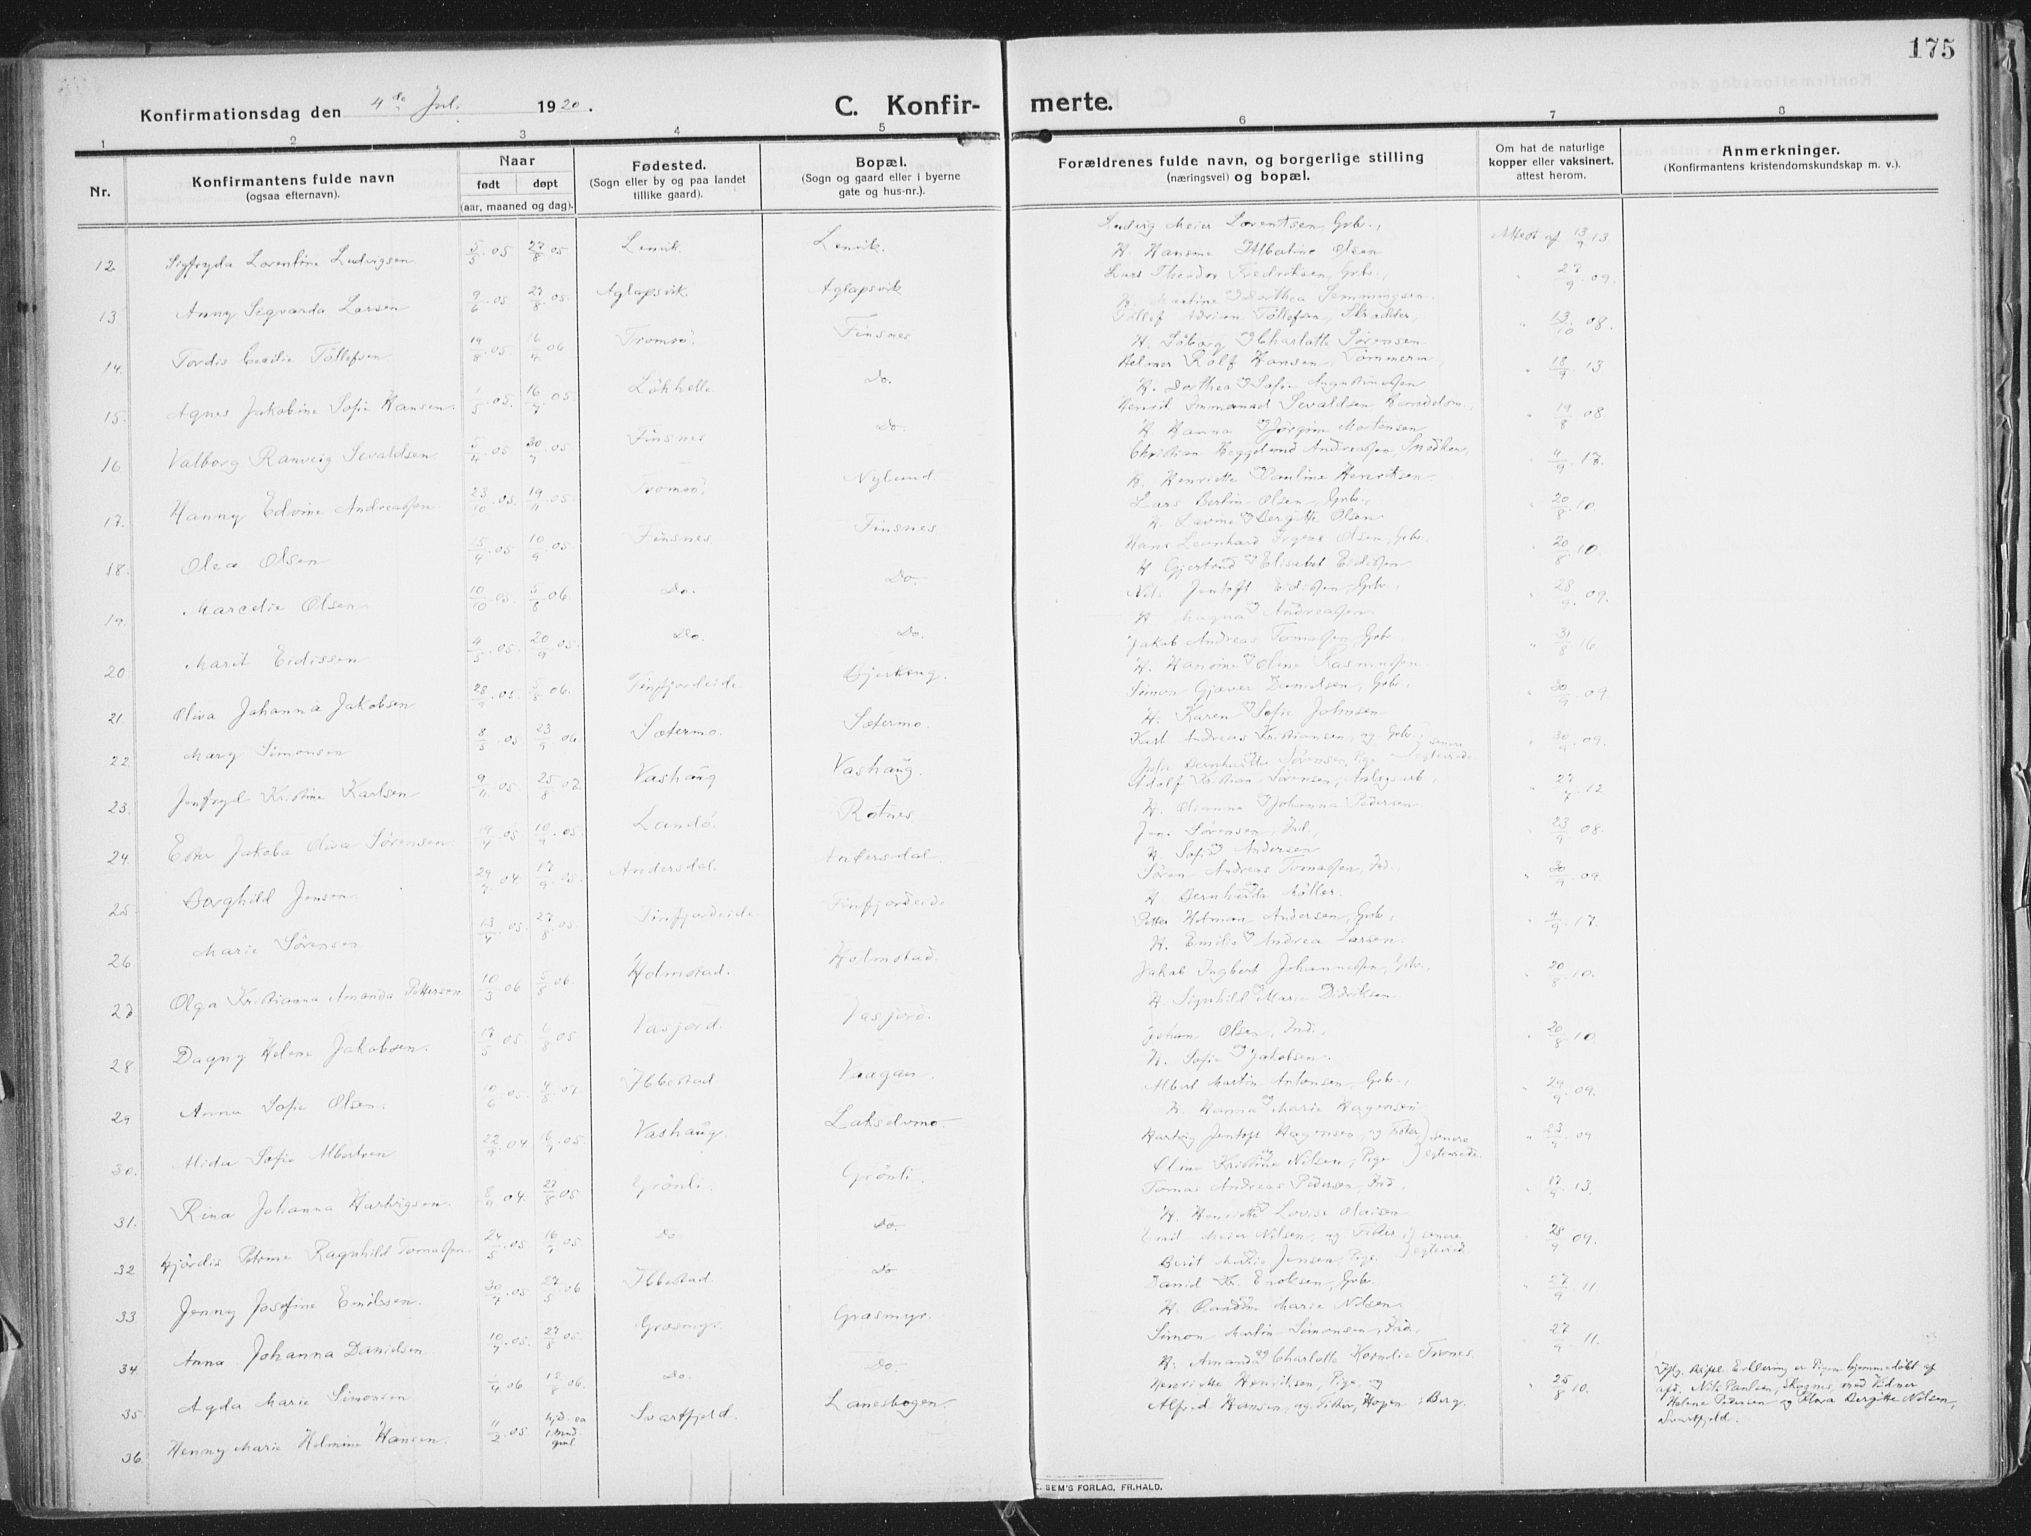 175
Konfirmationsdag den 4de Juli 1920.
C. Konfirmerte.
1 2 3 4 5 6 7 8
Nr.
Konfirmantens fulde navn
(ogsaa efternavn).
Naar
født døpt
(aar, maaned og dag).
Fødested.
(Sogn eller by og paa landet
tillike gaard).
Bopæl.
(Sogn og gaard eller i byerne
gate og hus-nr.).
Forældrenes fulde navn, og borgerlige stilling
(næringsvei) og bopæl.
Om hat de naturlige
kopper eller vaksinert.
attest herom.
Anmerkninger.
(Konfirmantens kristendomskundskap m. v.).
12. Sigfryda Lorentine Ludvigsen 5/5.05 27/8 05 Lenvik Lenvik. Ludvig Meier Lorentsen, Gvbr., Attest af 13/9 13
H. Hansine Albertine Olsen
13 Anny Sigvarda Larsen 9/6.05 27/8.05. Aglapsvik Aglapsvik Lars Theodor Fredriksen, Gvbr., " 27/9 09.
14. Tordis Cecilie Tøllefsen 19/8.05 16/4 06 Tromsø. Finsnes Tøllef Adrian Tøllefsen, Skrædder, " 13/10 08.
H. Søborg Charlotte Sørensen
15. Agnes Jakobine Sofie Hansen. 1/5.05. 16/7.05 Løkhelle Do. Helmer Rolf Hansen, Tømmerm. " 18/9 13
H. Dorthea Sofie Augustinussen
16 Valborg Ranveig Sevaldsen 5/4.05 30/7.05 Finsnes Do. Henrik Immanuel Sevaldsen " 19/8 08.
H. Hanna Jørgine Mortensen
17. Hanny Edvine Andreassen 23/10 05. 19/11.05 Tromsø. Nylund Christian Heggelund Andreassen, Snedker, " 4/9.18.
H. Henriette Pauline Henriksen
18. Olea Olsen 15/4.05 10/9.05. Finsnes Finsnes Lars Bertin Olsen, Gvbr., " 20/8.10.
H. Lavine Bergitte Olsen
19. Marcelie Olsen 10/10 05. 5/8 06. Do. Do. Hans Leonhard Olsen, Gvbr., " 20/8 10
H. Gjertrud Elisabet Eidissen
20 Marit Eidissen 4/5.05. 20/9.05. Do. Do. Jentoft Eidissen, Gvbr., " 28/9.09.
H. Magna Andreassen
21. Oliva Johanna Jakobsen 28/9.05. 5/8 06. Finfjordeid. Bjerkeng. Jakob Andreas Tomassen, Gvbr. " 31/8 16
H. Hansine Oline Rasmussen
22. Mary Simonsen 8/5.05 23/9 06 Sætermo. Sætermo. Simon Gjæver Danielsen, Gvbr., " 30/9 09
H. Karen Sofie Johnsen
23. Jenfryd Kristine Karlsen 9/11 05. 25/8 07. Vashaug Vashaug. Karl Andreas Kristiansen, ug. Gvbr. senere " 30/9.09.
Julie Bernhardtte Sørensen, Pige egteviede
24. Ester Jakoba Oliva Sørensen. 19/4.05 10/9.05. Landø. Rotnes Adolf Kristian Sørensen, Anlægsarb., " 27/7.12
H. Olianna Johanna Pedersen
25 Borghild Jensen 29/7 04. 17/9.05. Andersdal. Andersdal. Jens Sørensen, Ind., " 23/9 08.
H. Sofie Andersen
26. Marie Sørensen 13/4.05 27/8.05. Finfjordeide Finfjordeide Søren Andreas Tomassen, Ind. " 30/9.09.
H. Bernharda Møller.
27 Olga Kristianna Amanda Pettersen 10/3 06 5/8 06. Holmstad. Holmstad. Petter Hofman Andersen, Gvbr., " 4/9.17.
H. Emilie Andrea Larsen.
28 Dagny Helene Jakobsen. 17/5 05 6/8 05 Vasjord. Vasjord. Jakob Ingbert Johannessen, Gvbr., " 20/8.10.
H. Signhild Marie Didriksen
29 Anna Sofie Olsen. 10/6 05. 4/8.07 Ibbestad Vaagan. Johan Olsen, Ind., " 20/8.10
H. Sofie Jakobsen.
30. Alida Sofie Albertsen 22/9.04 16/7.05. Vashaug. Lakselvmo. Albert Martin Antonsen, Gvbr., " 29/9 09.
H. Hanna Marie Hagensen
31. Rina Johanna Hartvigsen. 8/9 04. 27/8 05 Grønli. Grønli. Hartvig Jentoft Hagensen, ug. Fisker senere " 23/9.09
Oline Kristine Nilsen, Pige egteviede.
32 Hjørdis Petrine Ragnhild Tomassen. 24/5.05 16/7 05 Do. Do. Tomas Andreas Pedersen, Ind., " 17/9.13.
H. Henriette Lovise Olaisen
33. Jenny Josefine Emilssen. 30/7.05 27/5 06 Ibbestad. Do Emil Meier Nilsen, ug. Fisker, senere " 28/9 09.
Berit Marie Jensen, Pige. egteviede
34. Anna Johanna Danielsen. 10/7.05. 27/8 05. Græsmyr. Græsmyr. Daniel Kr. Enoksen, Gvbr. " 27/9.11
H. Marie Nilsen.
35. Agda Marie Simonsen 1/4 06 12/8 06. Do. Do. Simon Martin Simonsen, Ind., " 27/9.11.
H. Amanda Charlotte Kornelie Trones
36. Henny Marie Helmine Hansen. 11/2.05. hjd. ca 1 Mnd gml. Svartfjeld. Lanesbogen. Henriette Henriksen, Pige, og " 25/8 10.
Alfred Hansen, ug. Fisker, Hopen i Berg.
Ifølg. Erklæring er Pigen hjemmedøbt af
afd. Nils Paulsen, Skognes, med Vidner
Helene Pedersen og Olava Bergitte Nilsen,
Svartfjeld.
SEM'S FORLAG, FR.HALD.